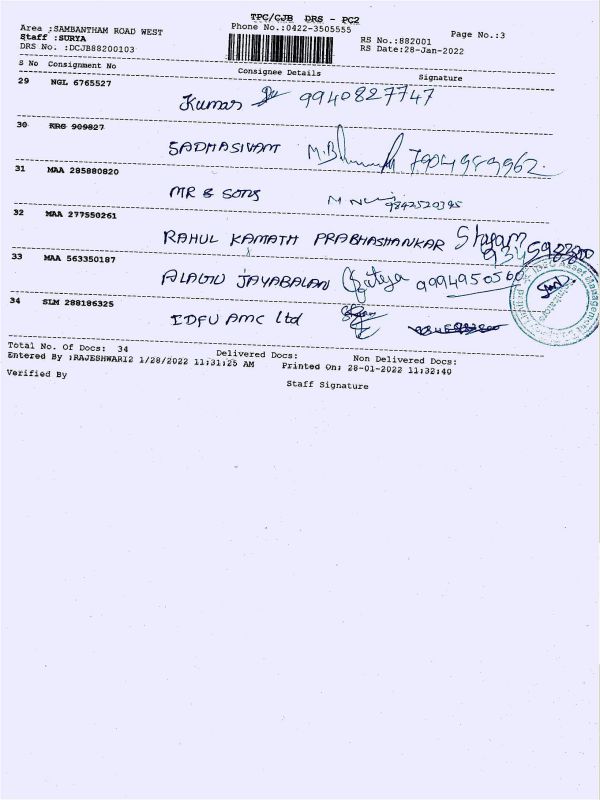 TPC/CJB DRS - PC2
Area :SAMBANTHAM ROAD WEST
Phone No.:0422-3505555
Page No.:3
Staff :SURYA
RS No.:882001
DRS No. :DCJB88200103
RS Date:28-Jan-2022
S No Consignment No Consignee Details Signature
29 NGL 6765527
Kumar 9940827747
30 KRG 909827
SADHASIVAM 7904989962
31 MAA 285880820
MR & SONS 9842520395
32 MAA 277550261
RAHUL KAMATH PRABHASHANKAR
33 MAA 563350187
ALAGU JAYABALAN 9994950560
34 SLM 288186325
IDFU AMC Ltd
Total No. Of Docs: 34 Delivered Docs: Non Delivered Docs:
Entered By :RAJESHWARI2 1/28/2022 11:31:25 AM Printed On: 28-01-2022 11:32:40
Verified By
Staff Signature